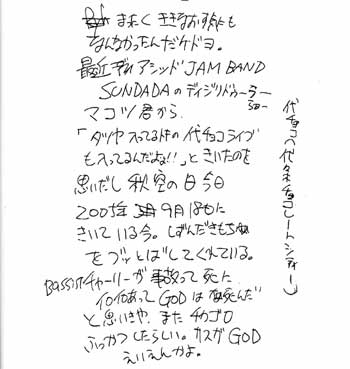 まったく ききなおす気にも
なんなかったんだケドヨ。
最近 ディアシッド JAM BAND
SUNDADAのディジリドゥーラー
マコツ君から
「ダツヤ 入ってる時の 代チョコライブ
も入ってるんだよね!!」ときいたのを
思いだし 秋空の日 今日
2005年 9月18日に
きいている今。しずんだきもちな
をブッとばしてくれている。
Bassistチャーリーが事故って死に
イロイロあってGODは 死んだ
と思いきや、また チカゴロ
ふっかつしたらしい。カスガGOD
えいえんかよ。
代チョコ(代々木チョコレートシティー)